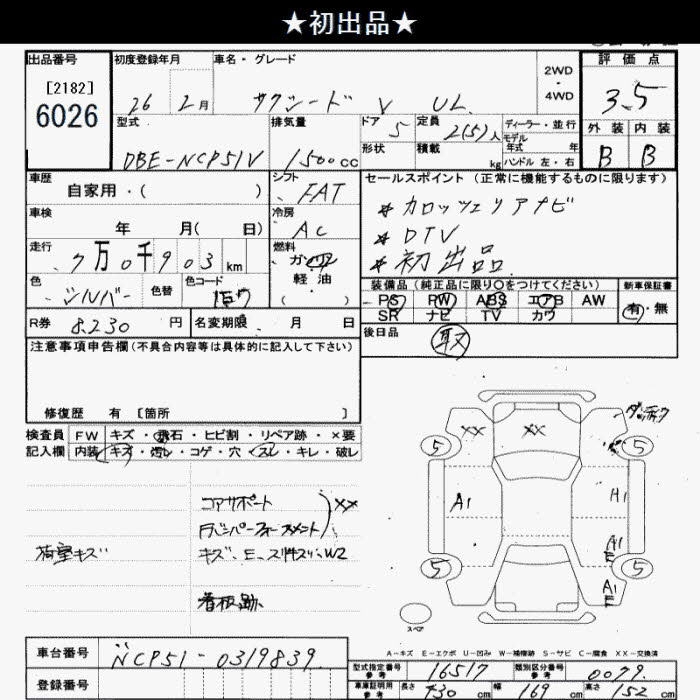 ★初出品★
出品番号 初度登録年月 車名・グレード 2WD・4WD 評価点
[2182]
6026
26 2月 サクシード V UL 3.5
型式 排気量 ドア 定員 ディーラー・並行 外装 内装
モデル年式 年
DBE-NCP51V 1500cc 5 2(5)人 B B
形状 積載 kg ハンドル 左・右
車歴 シフト セールスポイント(正常に機能するものに限ります)
自家用・( ) FAT
車検 冷房 ★カロッツェリアナビ
年 月( 日) AC ★DTV
走行 燃料 ★初出品
7万0千903km ガソリン
軽油
・( )
色 色替 色コード 装備品(純正品に限り○をつけてください) 新車保証書
シルバー PS PW ABS エアB AW 有・無
SR ナビ TV カワ
R券 8230円 名変期限 月 日 後日品 取
注意事項申告欄(不具合内容等は具体的に記入して下さい)
修復歴 有 [箇所 ]
検査員 FW キズ・飛石・ヒビ割・リペア跡・×要
記入欄 内装 キズ・汚レ・コゲ・穴・スレ・キレ・破レ
コアサポート XX
Fバンパーフォースメント
荷室キズ
看板跡
XX XX
5 5
A1 H1
A1
E
5 5
A1
E
スペア
A-キズ E-エクボ U-凹み W-補修跡 S-サビ C-腐食 XX-交換済
車台番号 NCP51-0319839
登録番号
型式指定番号 参考 16517 類別区分番号 参考 0079
車庫証明用 参考 長さ 430cm 幅 169cm 高さ 152cm